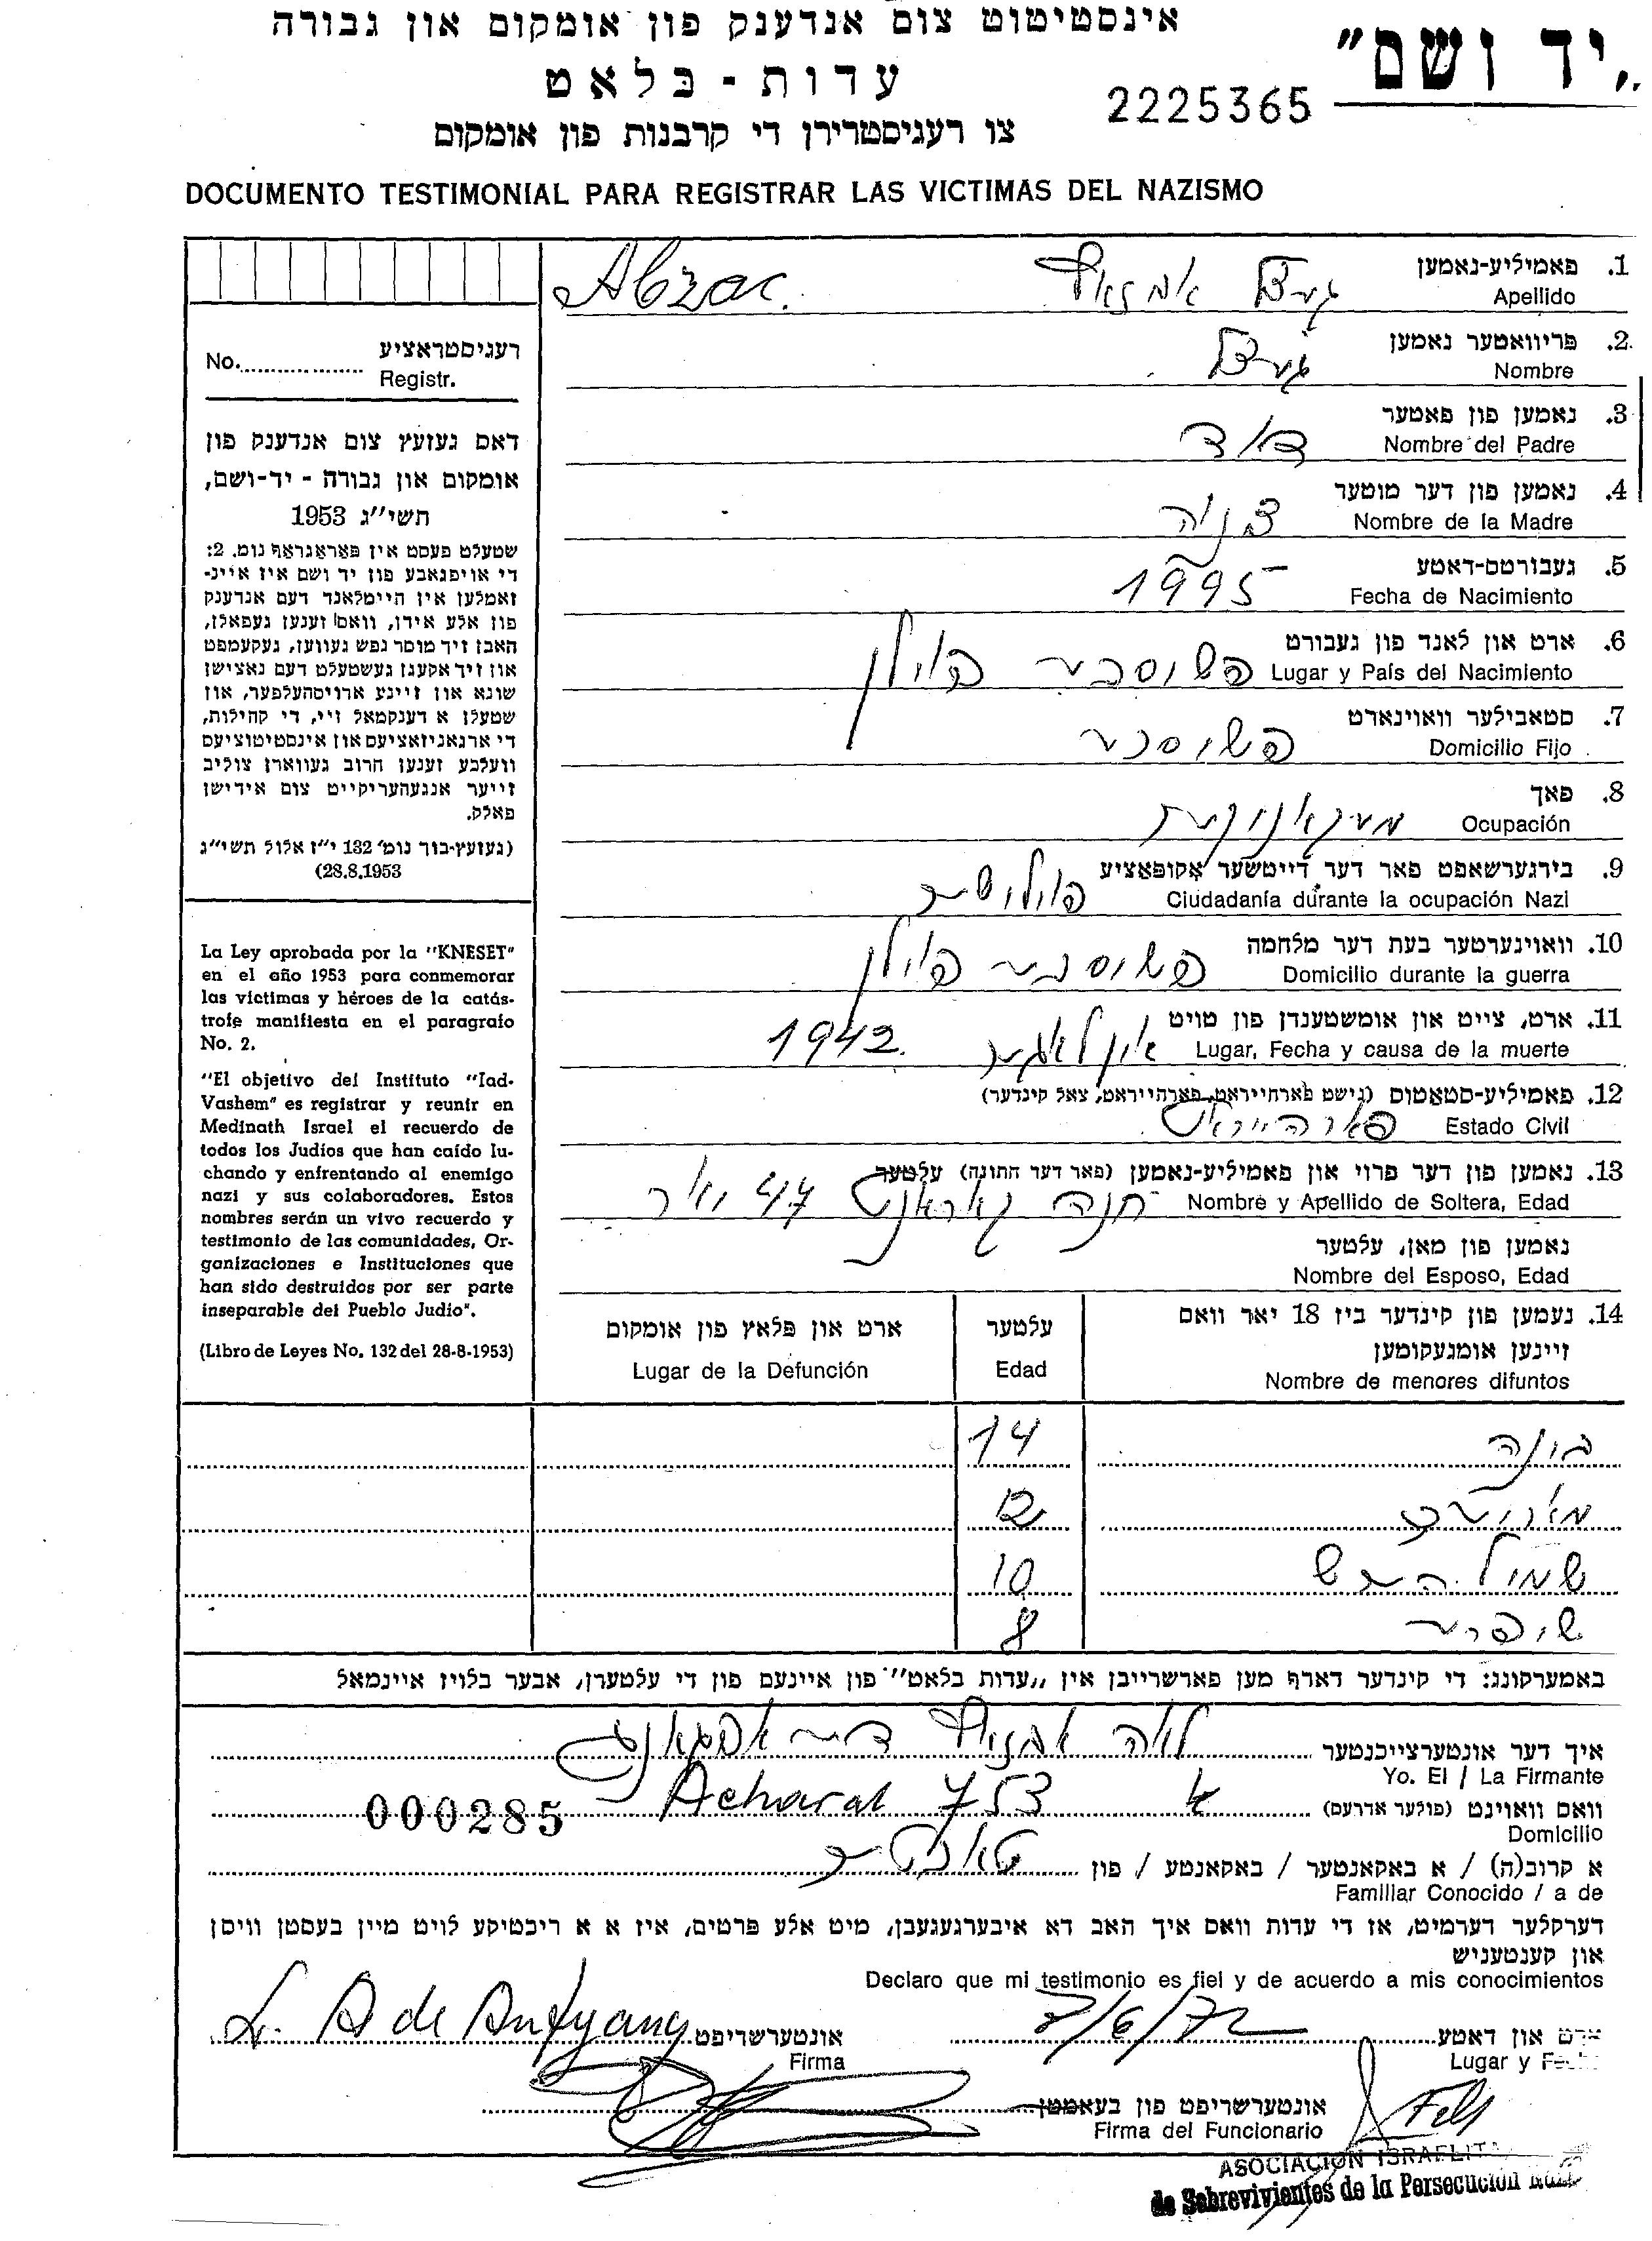 אינסטיטוט צום אנדענק פון אומקום און גבורה
„יד ושם"
עדות - בלאט
2225365
צו רעגיסטרירן די קרבנות פון אומקום
DOCUMENTO TESTIMONIAL PARA REGISTRAR LAS VICTIMAS DEL NAZISMO
1. פאמיליע-נאמען
Apellido
Abzac.
2. פריוואטער נאמען
Nombre
3. נאמען פון פאטער
Nombre del Padre
דוד
4. נאמען פון דער מוטער
Nombre de la Madre
5. געבורטס-דאטע
Fecha de Nacimiento
1995
6. ארט און לאנד פון געבורט
Lugar y País del Nacimiento
פוילן
7. סטאבילער וואוינארט
Domicilio Fijo
8. פאך
Ocupación
9. בירגערשאפט פאר דער דייטשער אקופאציע
Ciudadanía durante la ocupación Nazi
פוילישער
10. וואוינערטער בעת דער מלחמה
Domicilio durante la guerra
פוילן
11. ארט, צייט און אומשטענדן פון טויט
Lugar, Fecha y causa de la muerte
אין לאגער 1942.
12. פאמיליע-סטאטוס (נישט פארהייראט, פארהייראט, צאל קינדער)
Estado Civil
פארהייראט
13. נאמען פון דער פרוי און פאמיליע-נאמען (פאר דער חתונה) עלטער
Nombre y Apellido de Soltera, Edad
חנה 47 יאר
נאמען פון מאן, עלטער
Nombre del Esposo, Edad
14. נעמען פון קינדער ביז 18 יאר וואס
זיינען אומגעקומען
Nombre de menores difuntos
עלטער
Edad
ארט און פלאץ פון אומקום
Lugar de la Defunción
14
12
10
8
רעגיסטראציע
No.
Registr.
דאס געזעץ צום אנדענק פון
אומקום און גבורה - יד-ושם,
תשי"ג 1953
שטעלט פעסט אין פאראגראף נומ. 2:
די אויפגאבע פון יד ושם איז איינ-
זאמלען אין היימלאנד דעם אנדענק
פון אלע אידן, וואס זענען געפאלן,
האבן זיך מוסר נפש געווען, געקעמפט
און זיך אקעגן געשטעלט דעם נאצישן
שונא און זיינע ארויסהעלפער, און
שטעלן א דענקמאל זיי, די קהילות,
די ארגאניזאציעס און אינסטיטוציעס
וועלכע זענען חרוב געווארן צוליב
זייער אנגעהעריקייט צום אידישן
פאלק.
(געזעץ-בוך נומ' 132 י"ז אלול תשי"ג
28.8.1953)
La Ley aprobada por la "KNESET"
en el año 1953 para conmemorar
las víctimas y héroes de la catás-
trofe manifiesta en el paragrafo
No. 2.
"El objetivo del Instituto "Iad-
Vashem" es registrar y reunir en
Medinath Israel el recuerdo de
todos los Judíos que han caído lu-
chando y enfrentando al enemigo
nazi y sus colaboradores. Estos
nombres serán un vivo recuerdo y
testimonio de las comunidades, Or-
ganizaciones e Instituciones que
han sido destruidos por ser parte
inseparable del Pueblo Judío".
(Libro de Leyes No. 132 del 28-8-1953)
באמערקונג: די קינדער דארף מען פארשרייבן אין „עדות בלאט" פון איינעם פון די עלטערן, אבער בלויז איינמאל
איך דער אונטערצייכנטער
Yo. El / La Firmante
לאה
וואס וואוינט (פולער אדרעס)
Domicilio
753
000285
א קרוב(ה) / א באקאנטער / באקאנטע / פון
Familiar Conocido / a de
טאכטער
דערקלער דערמיט, אז די עדות וואס איך האב דא איבערגעגעבן, מיט אלע פרטים, איז א א ריכטיקע לויט מיין בעסטן וויסן
און קענטעניש
Declaro que mi testimonio es fiel y de acuerdo a mis conocimientos
ארט און דאטע
Lugar y Fecha
7/6/72
אונטערשריפט
Firma
אונטערשריפט פון בעאמטן
Firma del Funcionario
ASOCIACION ISRAELITA
de Sobrevivientes de la Persecución Nazi